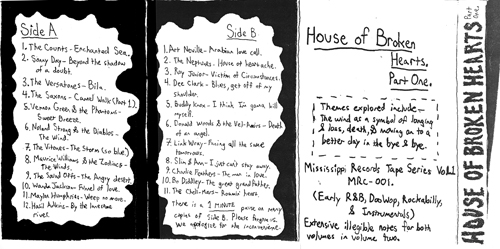 Side A
1. The Counts - Enchanted Sea.
2. Sonny Day - Beyond the shadow
of a doubt.
3. The Versatones - Bila.
4. The Saxons - Camel Walk (Part 1).
5. Vernon Green & the Phantoms -
Sweet Breeze.
6. Nolan Strong & the Diablos -
The Wind.
7. The Vitones - The Storm (so blue)
8. Maurice Williams & the Zodiacs -
The Winds.
9. The Sand Offs - The Angry desert.
10. Wanda Jackson - Funnel of love.
11. Mayba Humphries - Weep no more.
12. Hasil Adkins - By the lonesome
river.
Side B
1. Art Neville - Arabian love call.
2. The Neptunes - House of heartache.
3. Roy Junior - Victim of Circumstances.
4. Dee Clark - Blues, get off of my
shoulder.
5. Buddy Knox - I think I'm gonna kill
myself.
6. Donald Woods & the Vel-Aires - Death
of an angel.
7. Link Wray - Facing all the same
tomorrows.
8. Slim & Ann - I just can't stay away.
9. Charlie Feathers - The man in love.
10. Bo Diddley - The great grandfather.
11. The Chell-Mars - Roamin' heart.
There is a 1 MINUTE pause on many
copies of side B. Please forgive us.
We apologize for the inconvenience.
House of Broken
Hearts.
Part One.
Themes explored include -
The wind as a symbol of longing
& loss, death, & moving on to a
better day in the bye & bye.
Mississippi Records Tape Series Vol. 1
MRC-001.
(Early R&B, DooWop, Rockabilly,
& Instrumentals)
Extensive illegible notes for both
volumes in volume two.
HOUSE OF BROKEN HEARTS
Part
One.